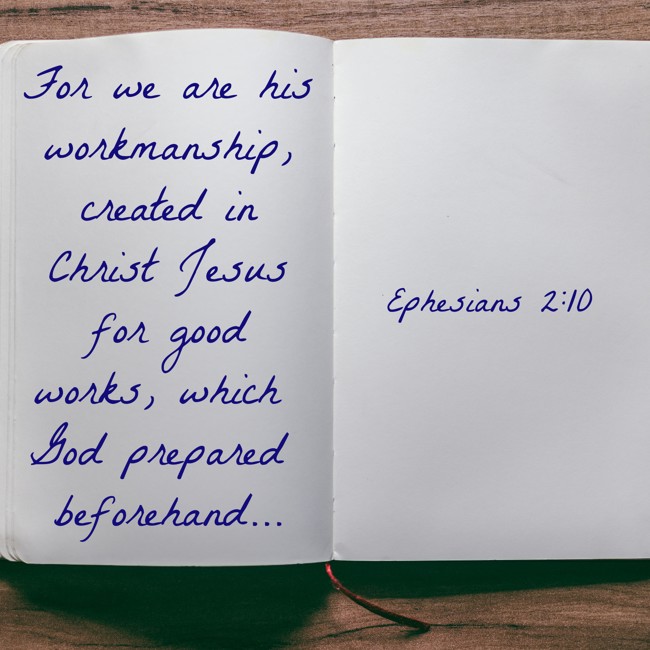 For we are his
workmanship,
created in
Christ Jesus
for good
works, which
God prepared
beforehand...
Ephesians 2:10